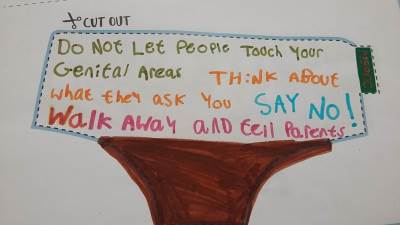 CUT OUT
Do Not Let People Touch Your
Genital Areas THiNK About
what they ask You SAY No!
Walk Away and tell Parents